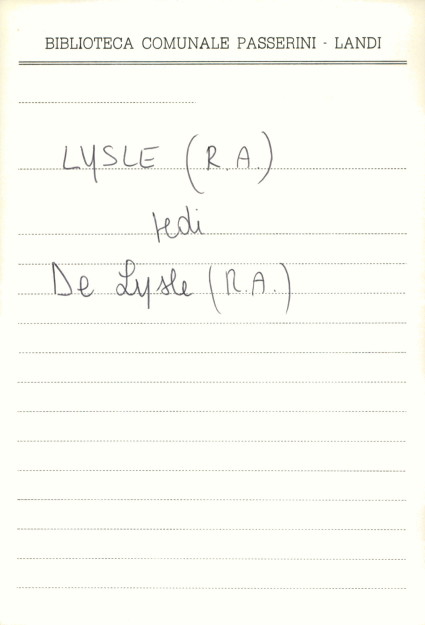 BIBLIOTECA COMUNALE PASSERINI - LANDI
LYSLE (R.A.)
vedi
De Lysle (R.A.)